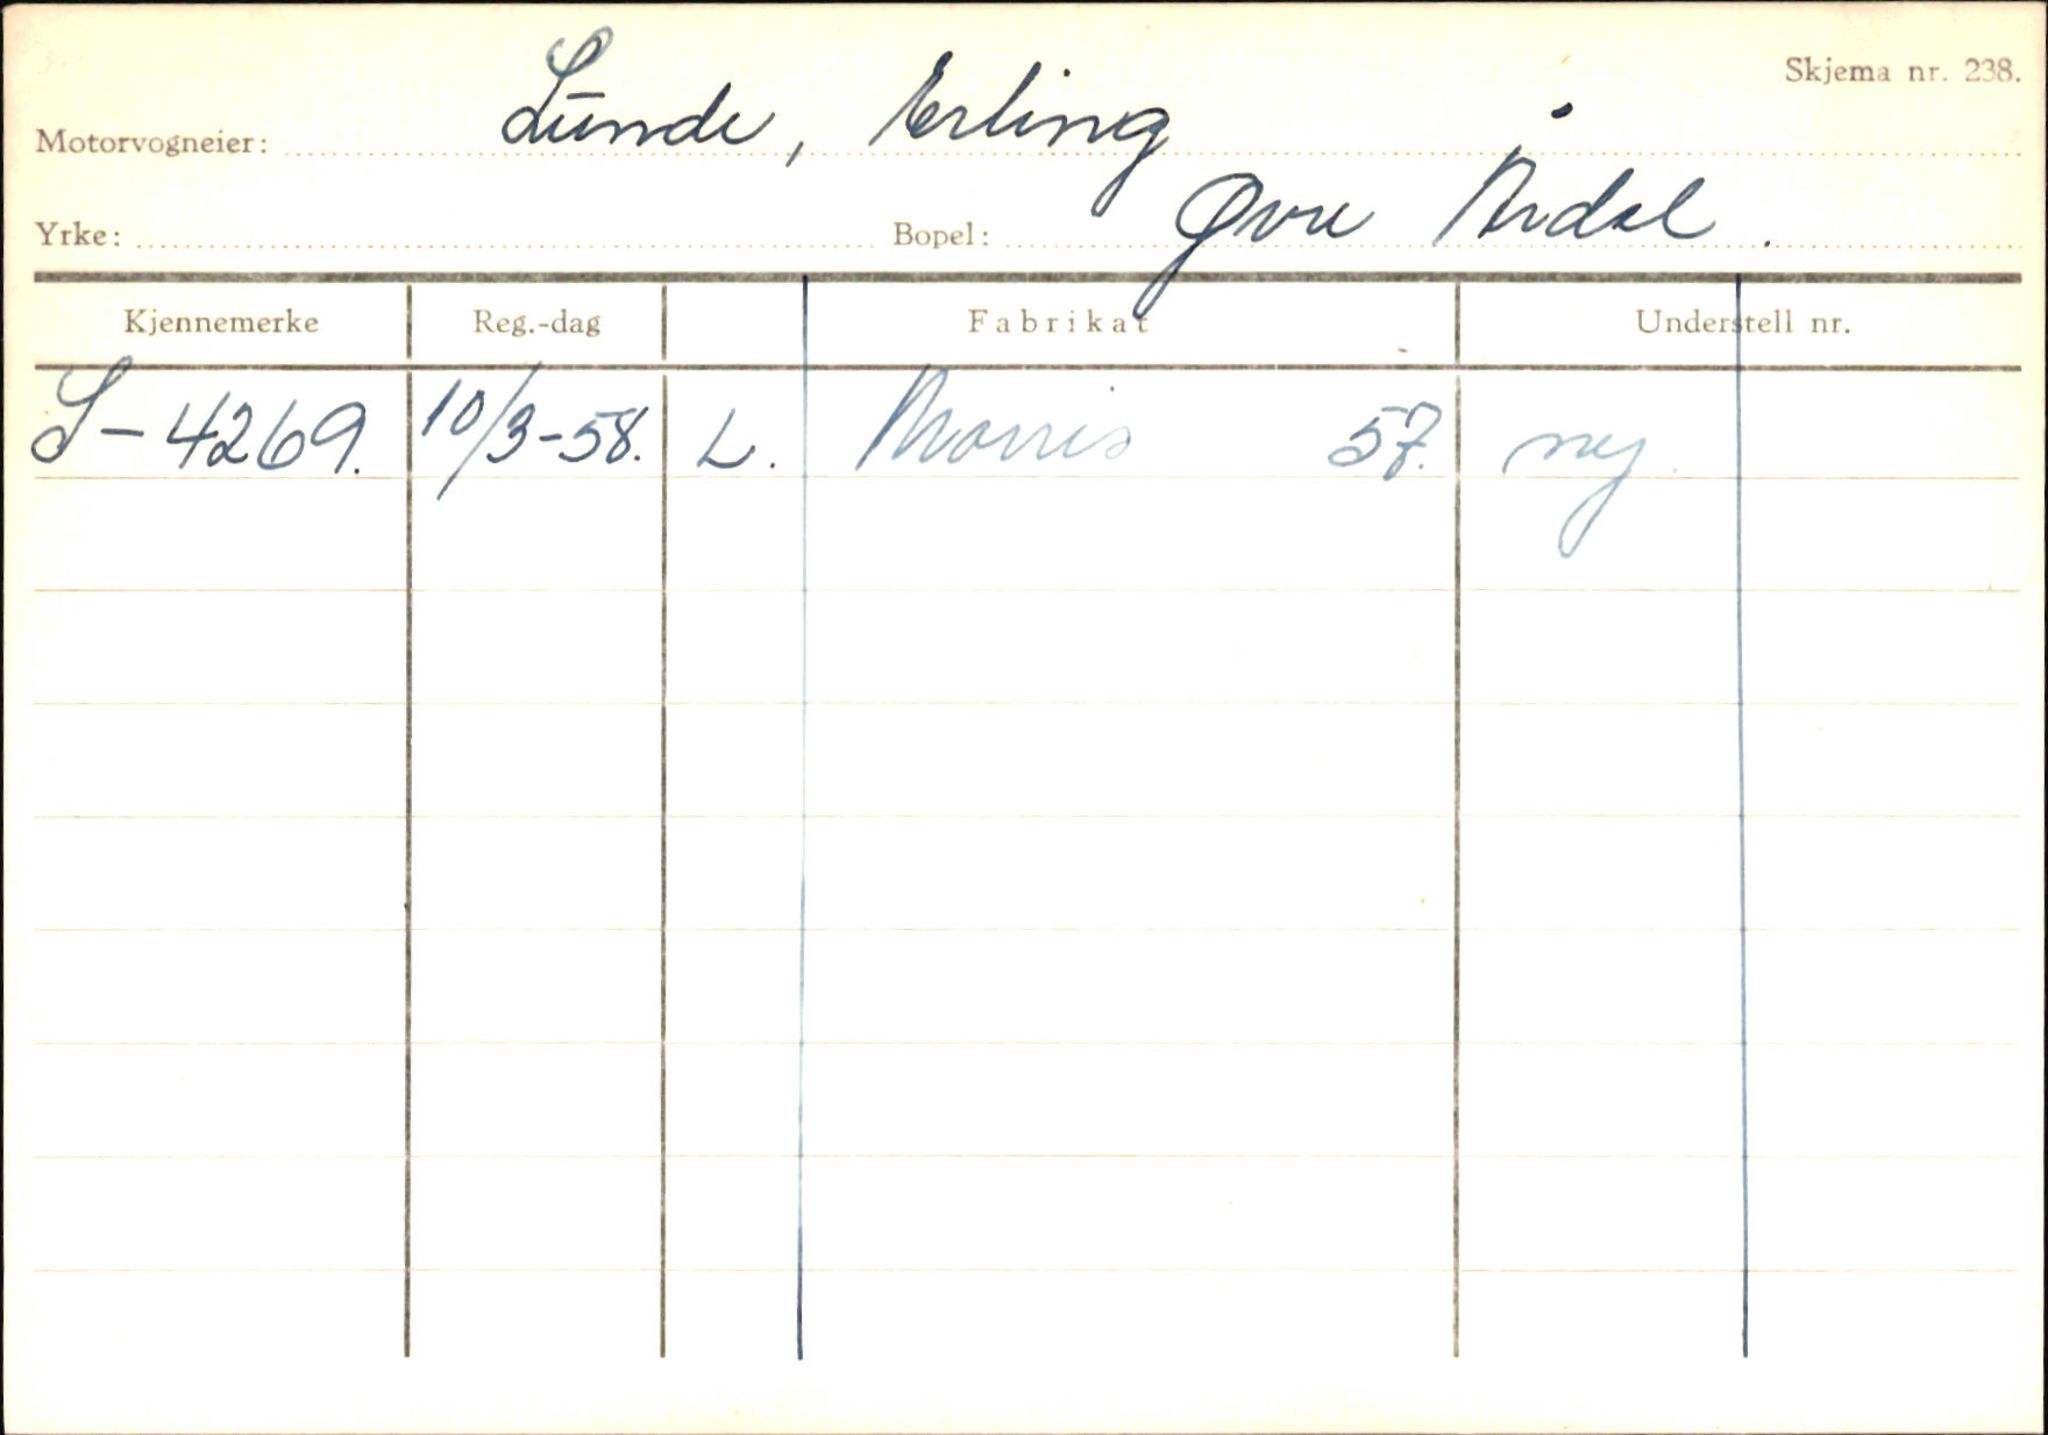 Skjema nr. 238.
Motorvogneier: Lunde, Erling
Yrke: Bopel: Øvre Årdal.
Kjennemerke Reg.-dag Fabrikat Understell nr.
S-4269. 10/3-58. L. Morris 57. ny.